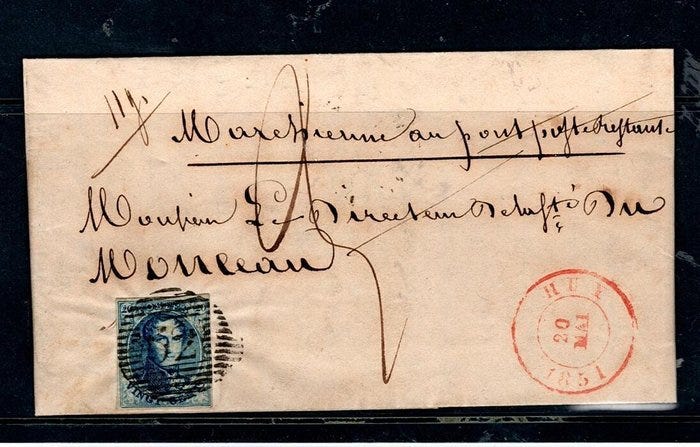 11g.
Marchienne au pont poste restante
Monsieur Le Directeur De la Sté Du
Monceau
HUY
20
MAI
1851